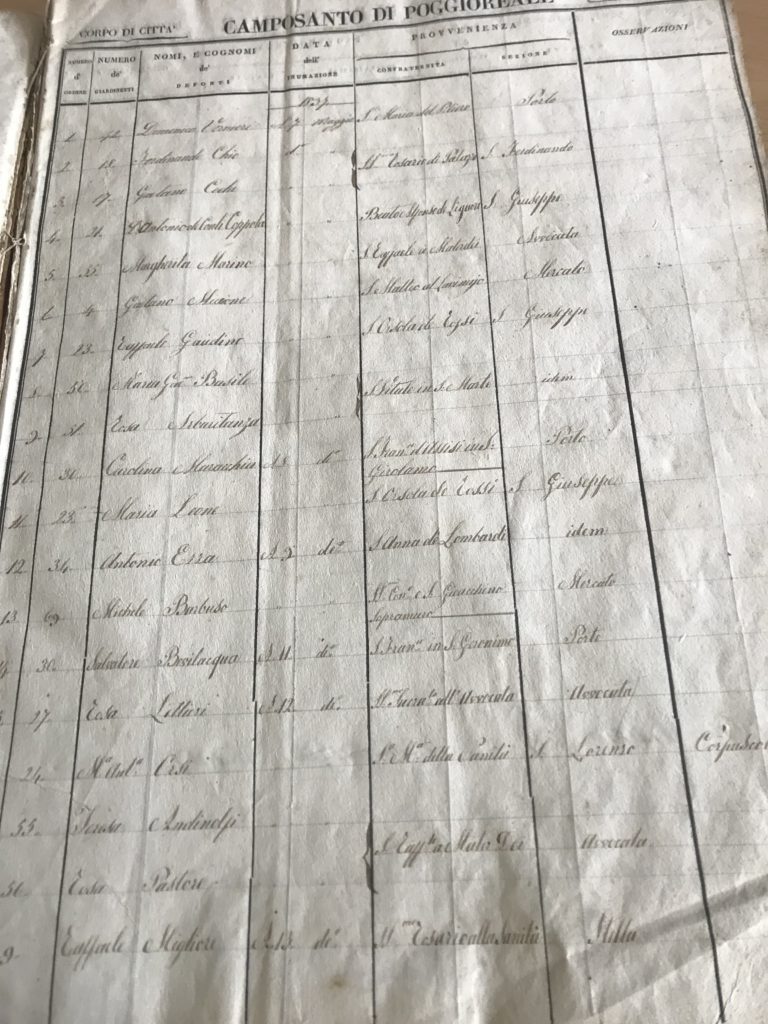 CORPO DI CITTA' CAMPOSANTO DI POGGIOREALE
NUMERO d' ORDINE NUMERO de' GIARDINETTI NOMI, E COGNOMI de' DEFONTI DATA dell' INUMAZIONE PROVVENIENZA CONFRATERNITA SEZIONE OSSERVAZIONI
1837
1. Domenico A 7 Maggio S. Maria del Porto
2. 18. Ferdinando Chio d.° SS. Rosario di Palazo S. Ferdinando
3. 17. Gaetano
4. 21. D. Antonio de Conti Coppola Beato Alfonso de Liguoro S. Giuseppe
5. 35. Margherita Marino S. Raffaele a Materdei Avvocata
6. 4. Gaetano S. Matteo al Lavinajo Mercato
7. 13. Raffaele Gaudino S. Orsola de Rossi S. Giuseppe
8. 50. Maria Gia. Basile S. Vitale in S. Marta idem
9. 31. Rosa
10. 30. Carolina A 8. d.° S. Fran.o d'Assisi in S. Girolamo Porto
11. 23. Maria Leone S. Orsola de Rossi S. Giuseppe
12. 34. Antonio Erra A 9 d.° S. Anna de Lombardi idem
13. 69. Michele Barbuso SS. Con.e e S. Giacchino Sopramuro Mercato
30. Salvatore Bevilacqua A 11. d.° S. Fran.o in S. Geronimo Porto
17. Rosa Lettieri A 12. d.° all' Avvocata Avvocata
24. M.a Ant.a Orsi S. M.a della Sanità S. Lorenzo
55. Teresa Andinolfi
56. Rosa Pastore S. Raff.le a Mater Dei Avvocata
9. Raffaele Migliore A 13. d.° SS.mo Rosario alla Sanità Stella